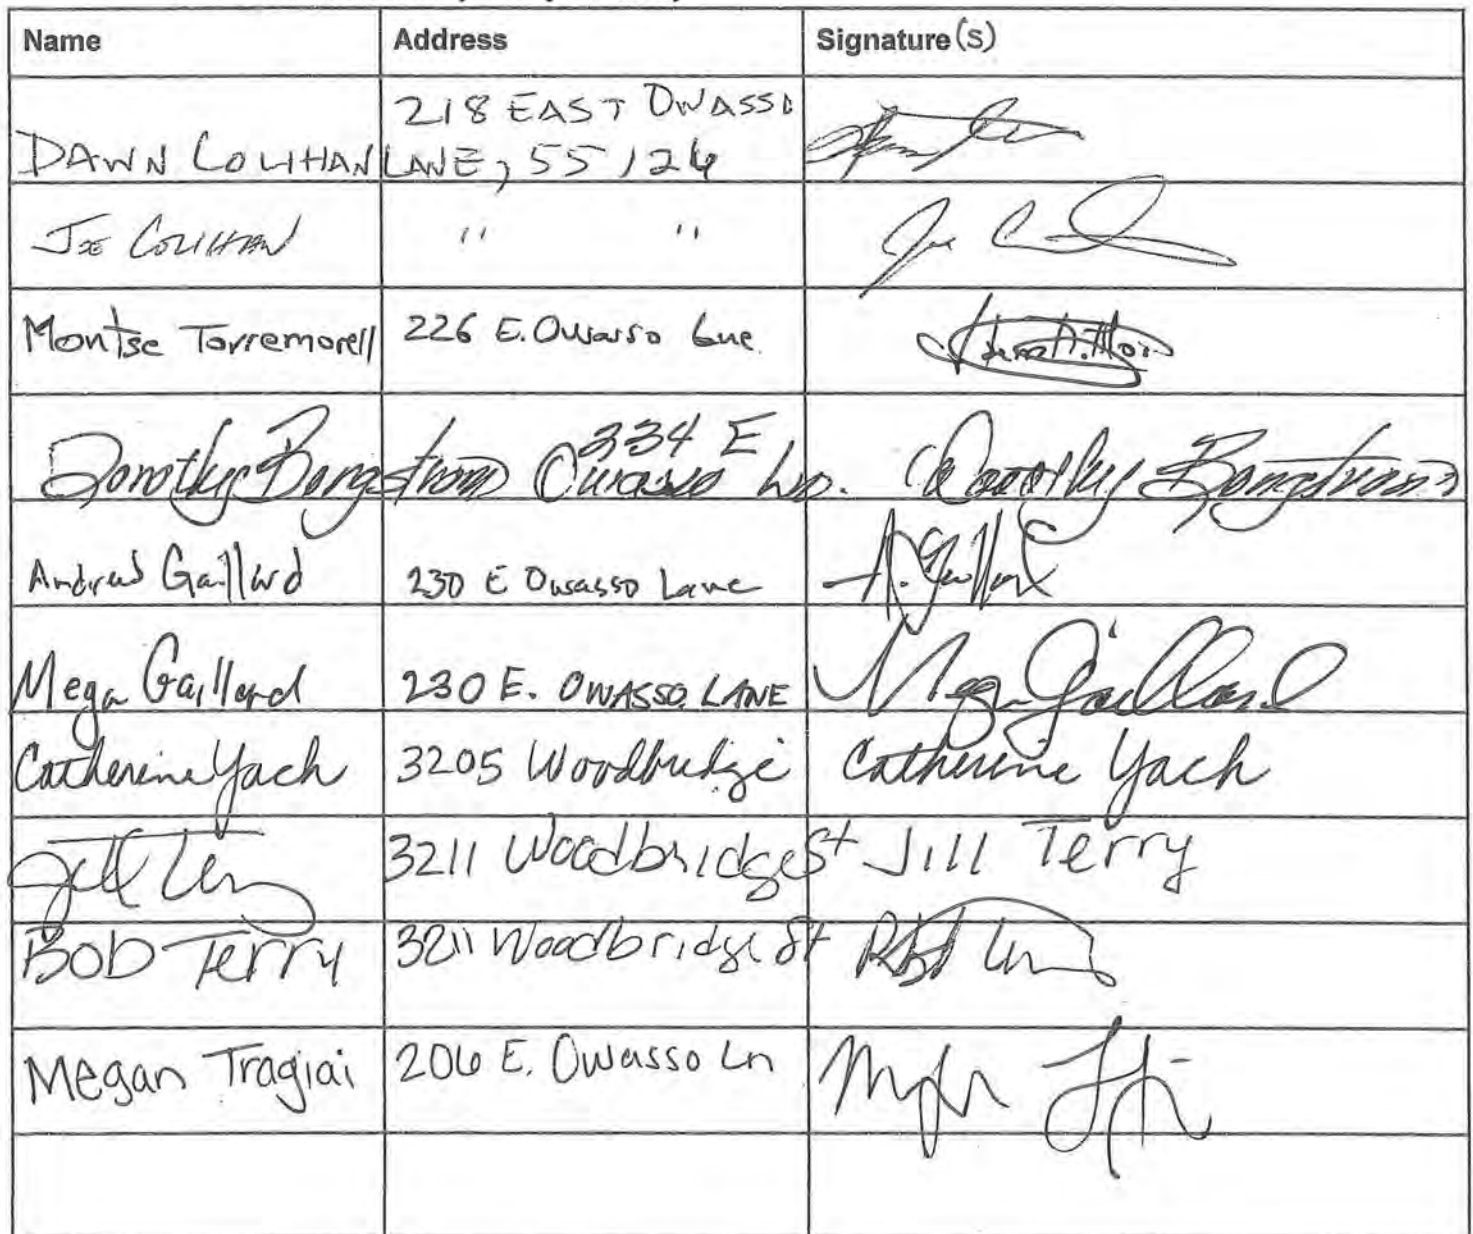 Name Address Signature(s)
218 EAST OWASSO
DAWN COLIHAN LANE, 55126
JOE COLIHAN " " Joe
Montse Torremorell 226 E. Owasso Lane
334 E
Dorothy Bongstrom Owasso Ln. Dorothy Bongstrom
Andrew Gaillard 230 E Owasso Lane A. Gaillard
Megan Gaillard 230 E. OWASSO LANE Megan Gaillard
Catherine Yach 3205 Woodbridge Catherine Yach
Jill Terry 3211 Woodbridge St Jill Terry
Bob Terry 3211 Woodbridge St
Megan Tragiai 206 E. Owasso Ln